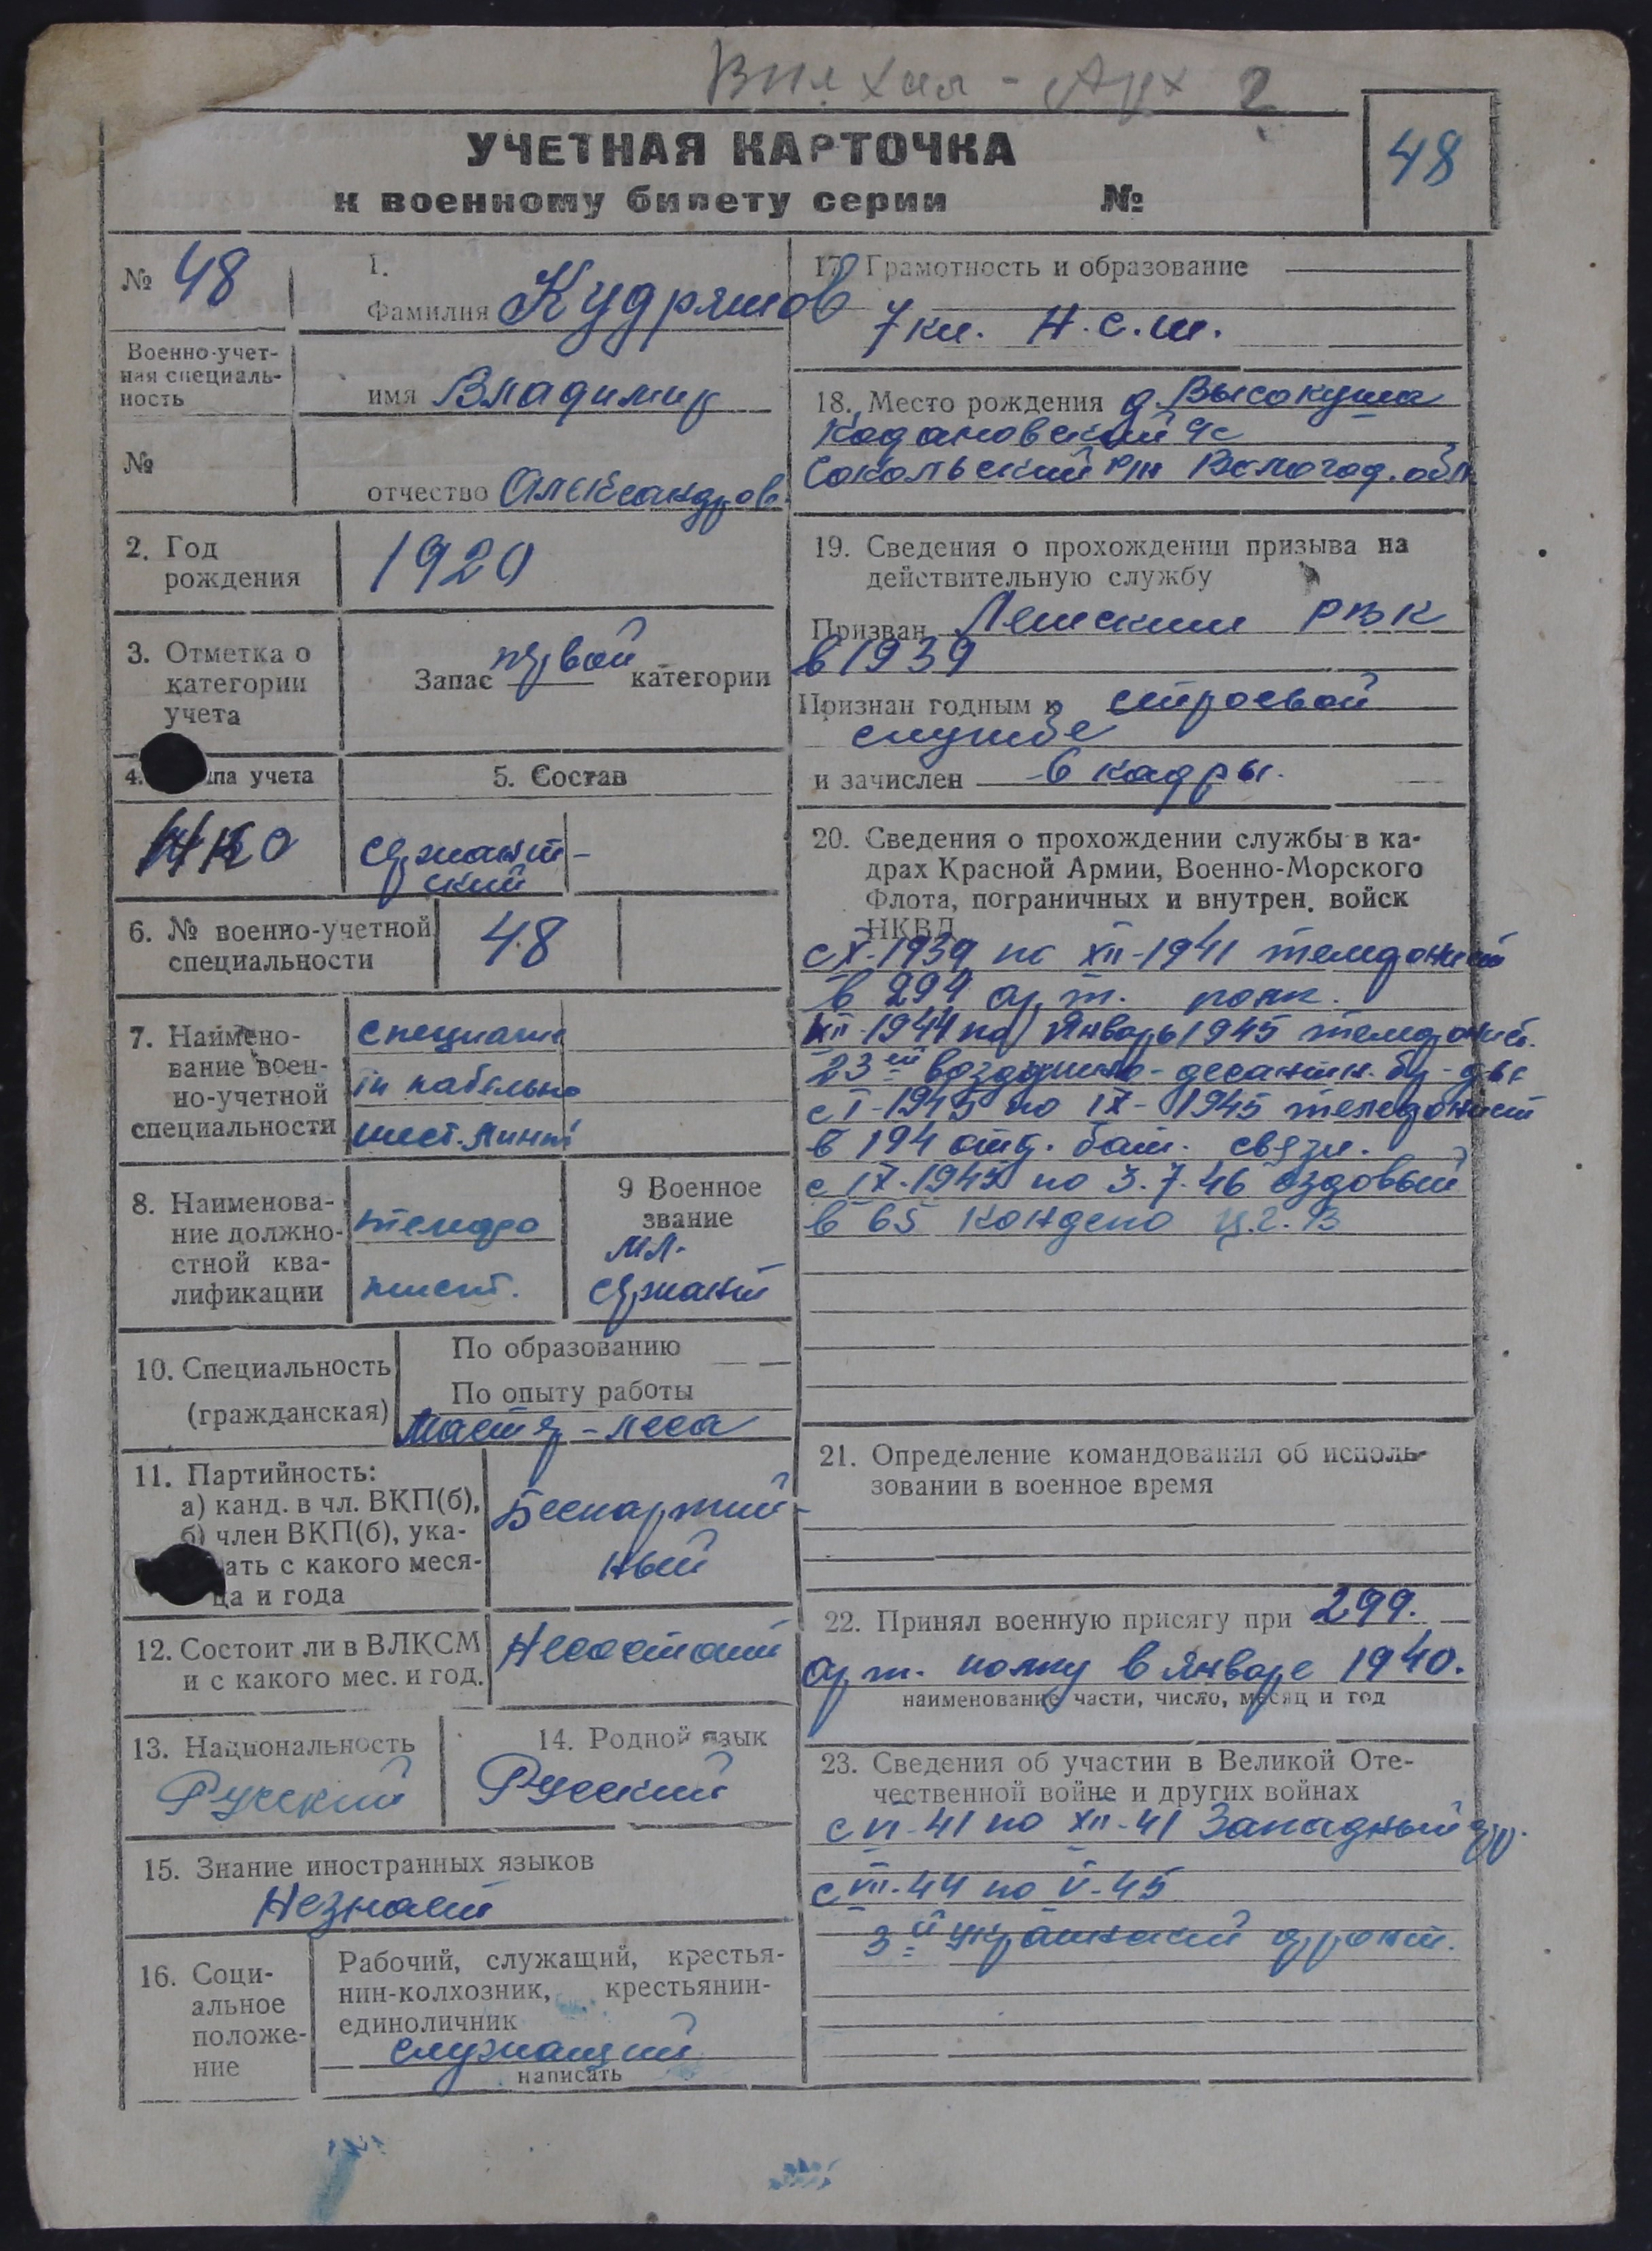 2
УЧЕТНАЯ КАРТОЧКА
к военному билету серии №
48
№ 48
1.
Фамилия Кудряшов
Военно-учет-
ная специаль-
ность
имя Владимир
№
отчество Александров.
2. Год
рождения
1920
3. Отметка о
категории
учета
Запас первой категории
4. па учета
5. Состав
сержант-
ский
6. № военно-учетной
специальности
48
7. Наимено-
вание воен-
но-учетной
специальности
специалис
кабельно
шест. линий
8. Наименова-
ние должно-
стной ква-
лификации
телефо
нист.
9 Военное
звание
мл.
сержант
10. Специальность
(гражданская)
По образованию
По опыту работы
Мастер-леса
11. Партийность:
а) канд. в чл. ВКП(б),
б) член ВКП(б), ука-
ать с какого меся-
ца и года
Беспартий-
ный
12. Состоит ли в ВЛКСМ
и с какого мес. и год.
Несостоит
13. Национальность
Русский
14. Родной язык
Русский
15. Знание иностранных языков
Незнает
16. Соци-
альное
положе-
ние
Рабочий, служащий, крестья-
нин-колхозник, крестьянин-
единоличник
служащий
написать
17. Грамотность и образование
7 кл. Н.с.ш.
18. Место рождения д. Высокуша
Кодановский с/с
Сокольский р/н Вологод. обл
19. Сведения о прохождении призыва на
действительную службу
Призван РВК
в 1939
Признан годным к строевой
службе
и зачислен в кадры.
20. Сведения о прохождении службы в ка-
драх Красной Армии, Военно-Морского
Флота, пограничных и внутрен. войск
НКВД
с X-1939 по XII-1941 телефонист
в 294 арт. полк.
XII-1944 по Январь 1945 телефонист.
23ей воздушно-десантн.
с I-1945 по IX-1945 телефонист
в 194 отд. бат. связи.
с IX-1945 по 3.7.46 ездовый
в 65
21. Определение командования об исполь-
зовании в военное время
22. Принял военную присягу при 299.
арт. полку в Январе 1940.
наименование части, число, месяц и год
23. Сведения об участии в Великой Оте-
чественной войне и других войнах
с VI-41 по XII-41 Западный фр.
с VII-44 по V-45
3й украинский фронт.